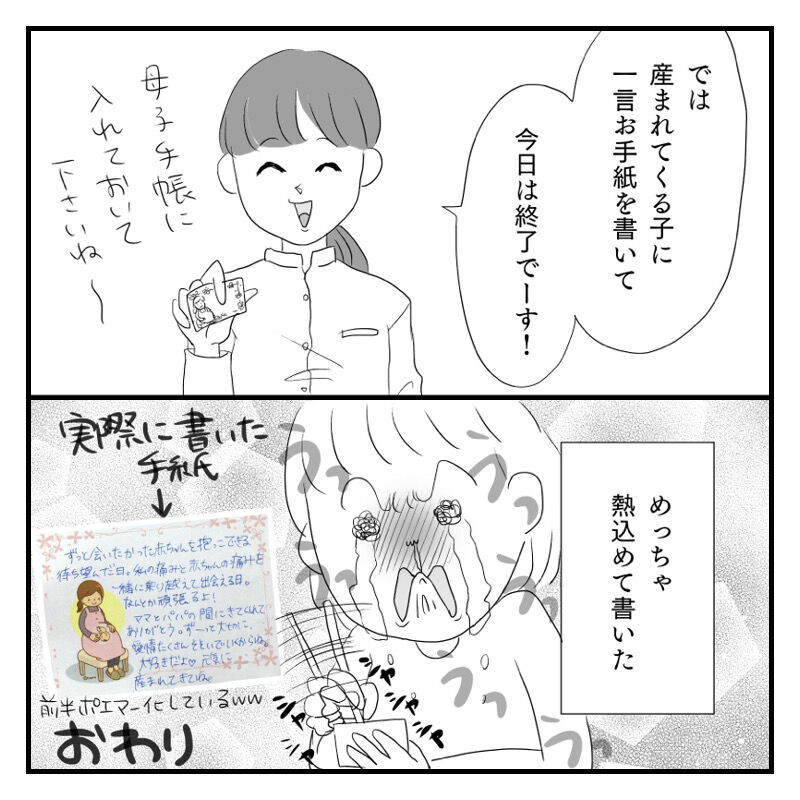 では
産まれてくる子に
一言お手紙を書いて
今日は終了でーす!
母子手帳に
入れておいて
下さいね〜
めっちゃ
熱込めて書いた
うっ
うっ
うっ
うっ
うっ
実際に書いた
手紙
ずっと会いたかった赤ちゃんを抱っこできる
待ち望んだ日。私の痛みと赤ちゃんの痛みを
一緒に乗り越えて出会える日。
なんとか頑張るよ!
ママとパパの間にきてくれて
ありがとう。ずーっと大切に、
愛情たくさんそそいでいくからね。
大好きだよ♡元気に
産まれてきてね。
前半ポエマー化しているww
おわり